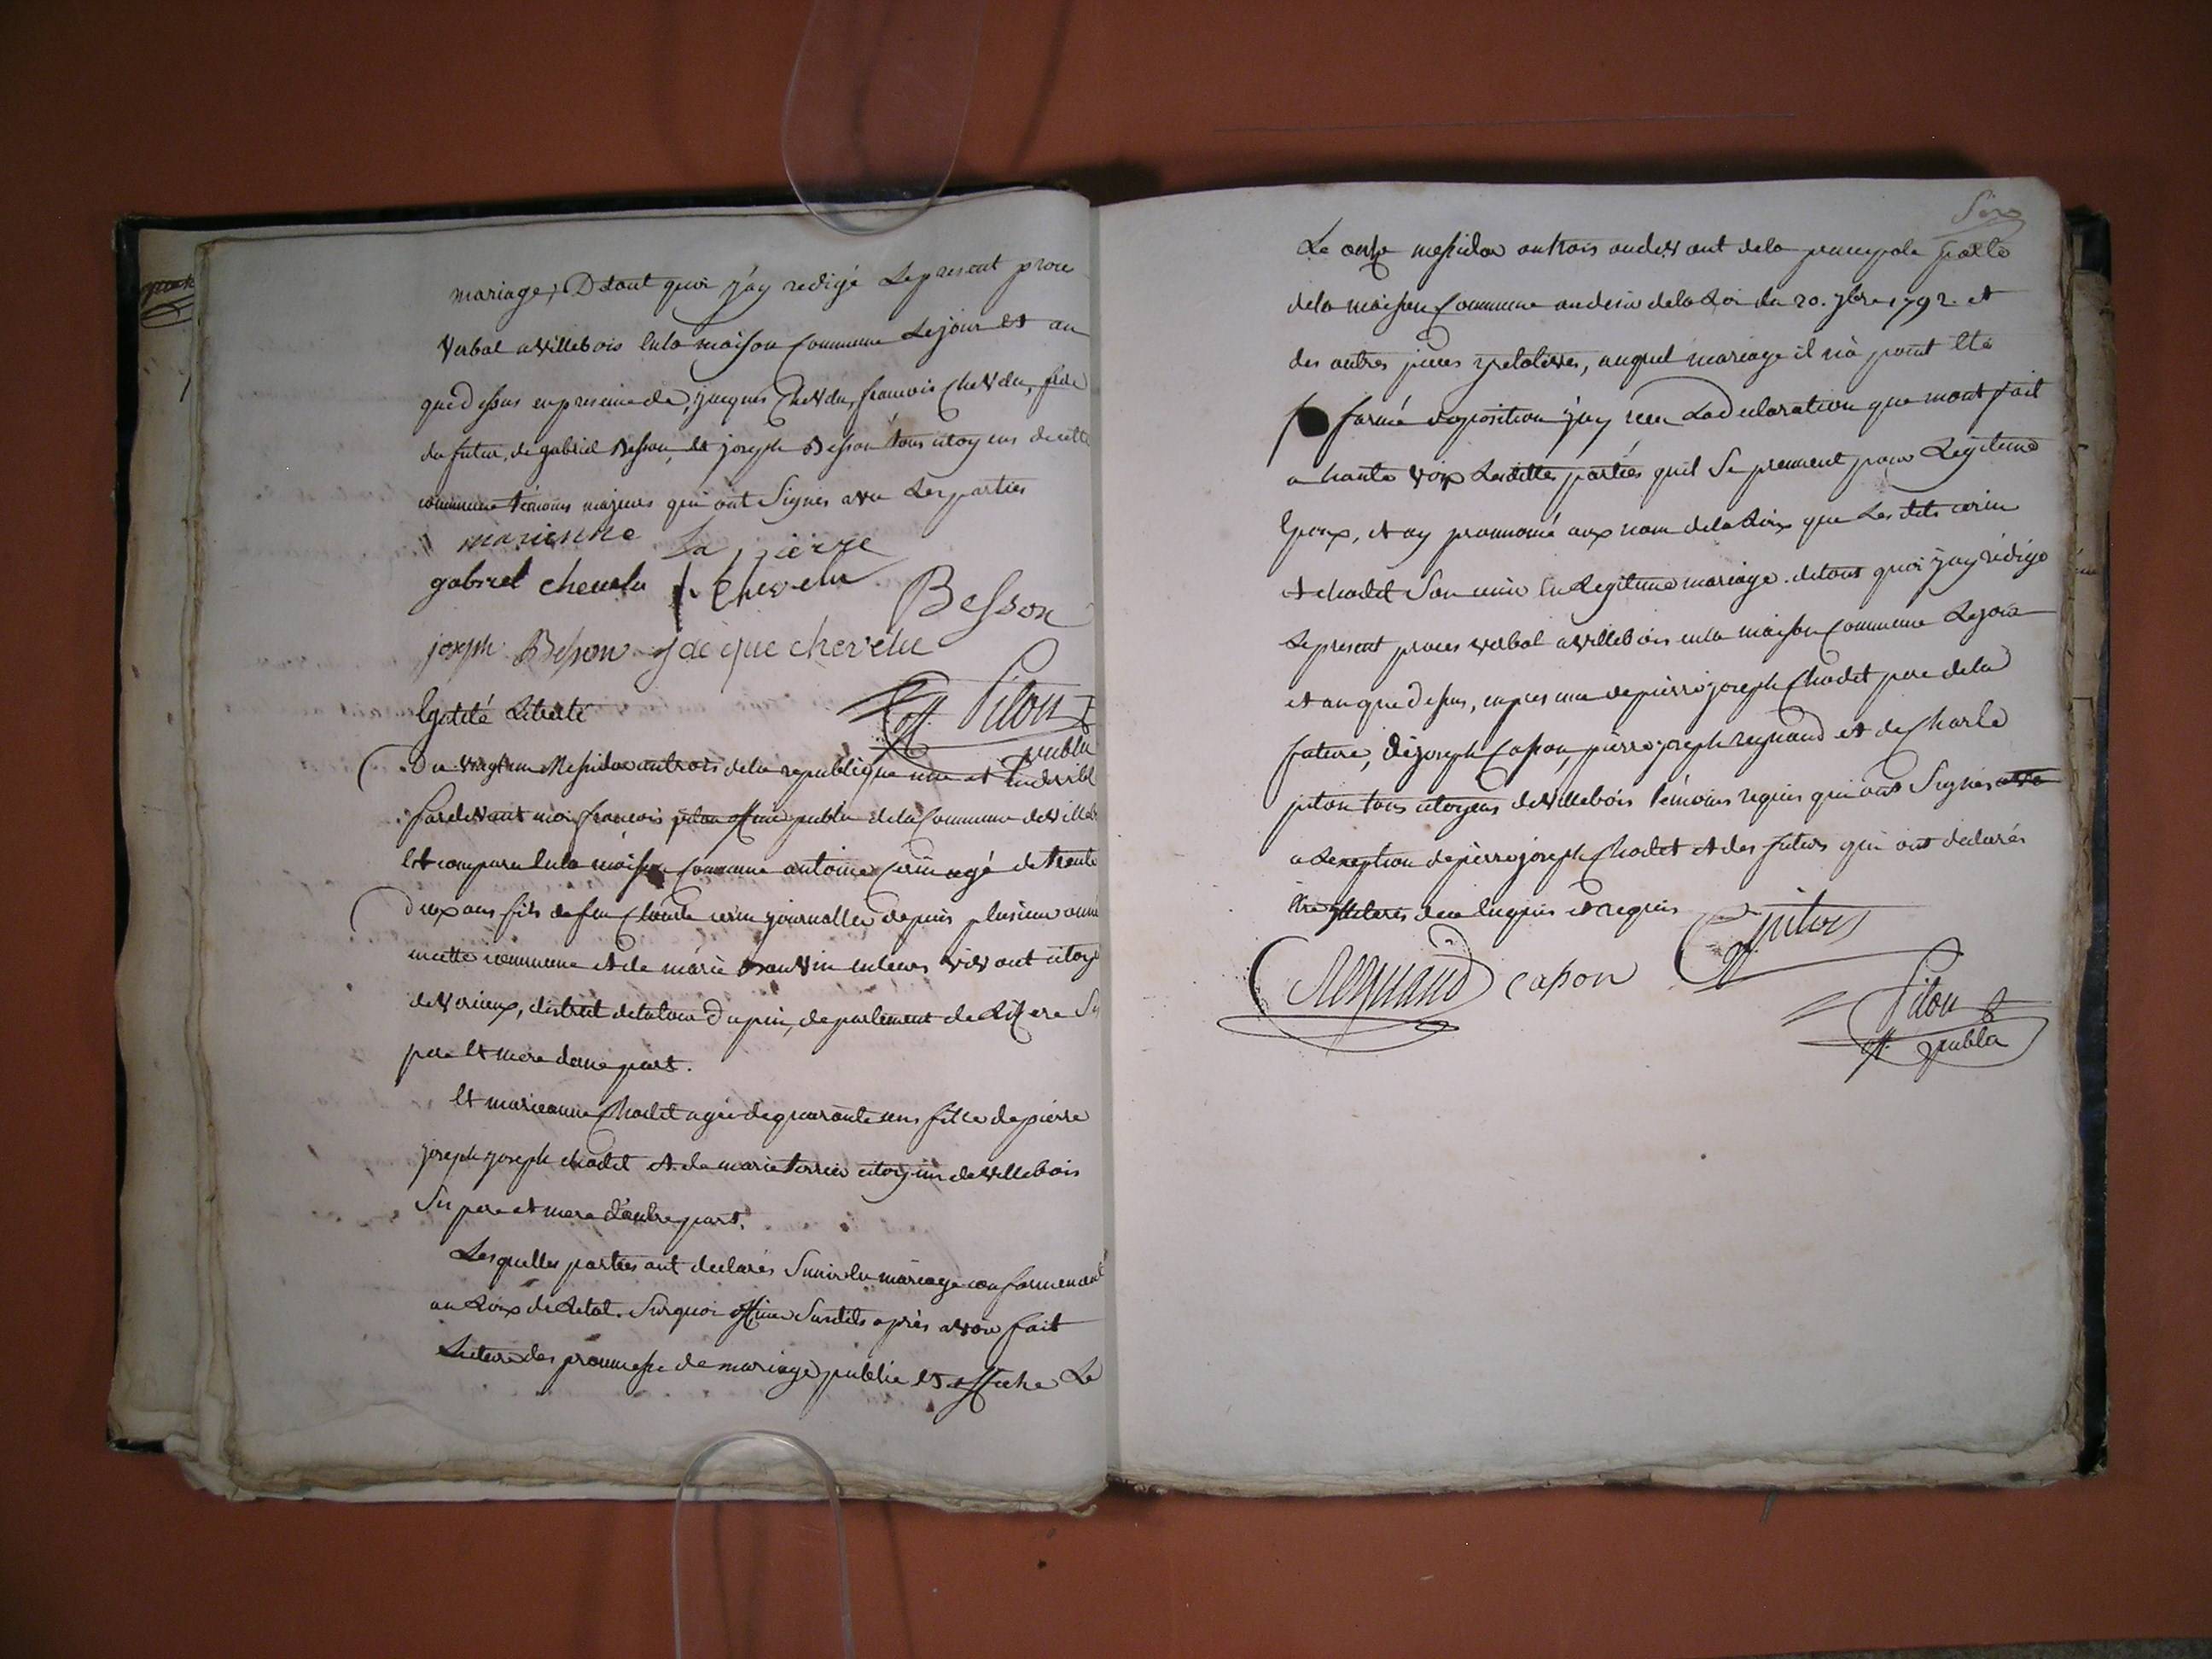 mariage, D tout quoi j'ay redigé Le present proce
verbal a villebois en la maison commune Le jour et an
que d essus en presence de, jacques Chevelu, francois Chevelu, frere
du futur, de gabriel Besson, et joseph Besson tous citoyens de cette
commune temoins majeurs qui ont Signes avec Les parties
marienne La pierre
gabriel chevelu f. Chevelu
Besson
joseph Besson jacque chevelu
Egalité Liberté
Pilon
off. public
Du vingt un Messidor an trois de la republique une et Indivisibl
Pardevant moi francois pilon officier public de la Commune de villeb
Est comparu en la maison Commune antoine Cerin agé de trente
deux ans fils de feu Claude cerin journallier depuis plusieur anné
en cette commune et de marie en leurs vivant citoye
de verieux, district de la tour Dupin, departement de L'isere Se
pere et mere d'une part.
Et marieanne Chodet agée de quarante ans fille de pierre
joseph joseph chodet et de marie terrier citoyens de villebois
Ses pere et mere d'autre part.
Lesquelles parties ont declarés S'unir en mariage conformement
au Loix de Letat. Surquoi officier Susdits après avoir fait
Lecture des proumesse de mariage publie et affiche Le
Le onze messidor an trois au devant de la principale porte
de la maison Commune au desir de la Loi du 20. 7bre 1792. et
des autres pieces relatives, auquel mariage il n'à point été
formé doposition j'ay recu La declaration que mont fait
a haute voix Lesdittes parties quil Se prennent pour Legitime
Epoux, et ay prononcé aux nom de la Loix que Les dits cerin
et chodet Son unie en Legitime mariage. de tout quoi j'ay redigé
Le present proces verbal a villebois en la maison Commune Le jour
et an que dessus, en presence de pierre joseph Chodet pere de la
future, de joseph Cason, pierre joseph reynaud et de Charle
piton tous citoyens de villebois témoins requis qui ont Signés
a Lexeption de pierre joseph Chodet et des futurs qui ont declarés
être illiteres de ce enquis et requis
Reynaud cason piton
Pilon
off. public